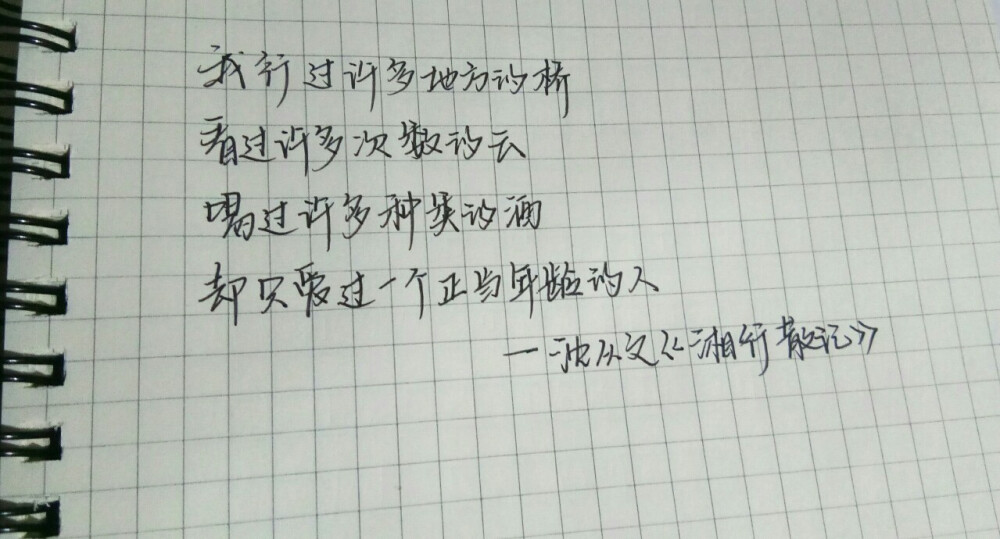 我行过许多地方的桥
看过许多次数的云
喝过许多种类的酒
却只爱过一个正当年龄的人
一沈从文《湘行散记》